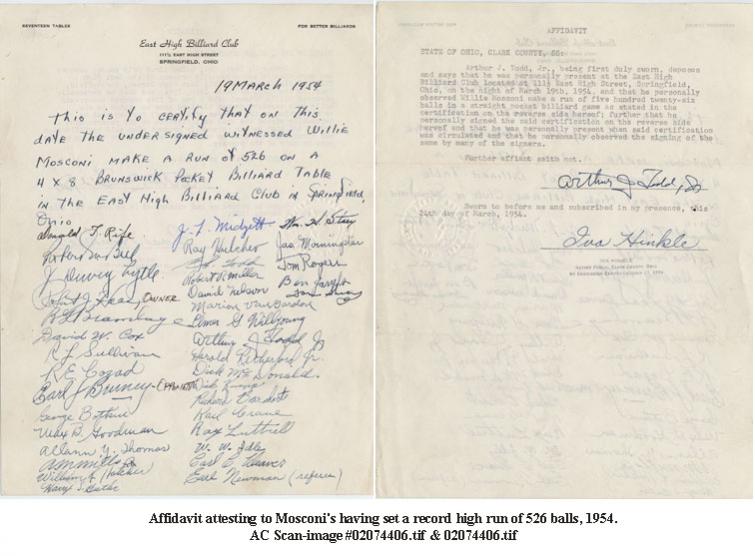 SEVENTEEN TABLES
FOR BETTER BILLIARDS
East High Billiard Club
111½ EAST HIGH STREET
SPRINGFIELD, OHIO
19 March 1954
This is to certify that on this
date the undersigned witnessed Willie
Mosconi make a run of 526 on a
4 x 8 Brunswick Pocket Billiard Table
in the East High Billiard Club in Springfield,
Ohio.
Donald T. Rife
J. Dewey Lytle
OWNER
David W. Cox
R J Sullivan
R E Cozad
Earl J Bruney
(OPPONENT)
George Bothun
Max B. Goodman
Allann Y. Thomas
J. F. Midgett
Ray Hulcher
Robert Miller
David Nelson
Marion
Elmer G Willyoung
Arthur J Todd Jr
Harold Jr.
Dick McDonald
Dick
Richard
Karl Crane
Ray Luttrell
W. W.
Carl C
Earl Newman (referee)
Wm. H.
Jas. Morningstar
Tom Rogers
Ben
AFFIDAVIT
STATE OF OHIO, CLARK COUNTY, SS:
Arthur J. Todd, Jr., being first duly sworn, deposes
and says that he was personally present at the East High
Billiard Club located at 111½ East High Street, Springfield,
Ohio, on the night of March 19th, 1954, and that he personally
observed Willie Mosconi make a run of five hundred twenty-six
balls in a straight pocket billiard game as stated in the
certification on the reverse side hereof; further that he
personally signed the said certification on the reverse side
hereof and that he was personally present when said certification
was circulated and that he personally observed the signing of the
same by many of the signers.
Further affiant saith not.
Arthur J Todd, Jr
Sworn to before me and subscribed in my presence, this
day of March, 1954.
Iva Hinkle
IVA HINKLE
NOTARY PUBLIC, CLARK COUNTY, OHIO
MY COMMISSION EXPIRES
Affidavit attesting to Mosconi's having set a record high run of 526 balls, 1954.
AC Scan-image #02074406.tif & 02074406.tif